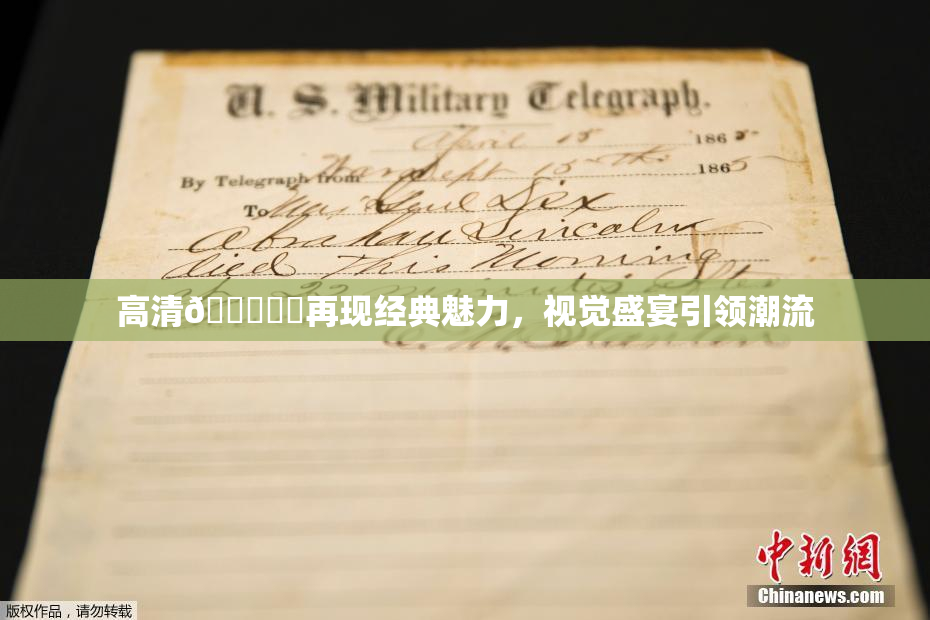 U. S. Military Telegraph.
April 15 1865
By Telegraph from War Dept 15th 1865
To Maj Genl Dix
Abraham Lincoln
died This Morning
at 22 minutes after
高清ð再现经典魅力，视觉盛宴引领潮流
E. M. Stanton
中新网
Chinanews.com
版权作品，请勿转载